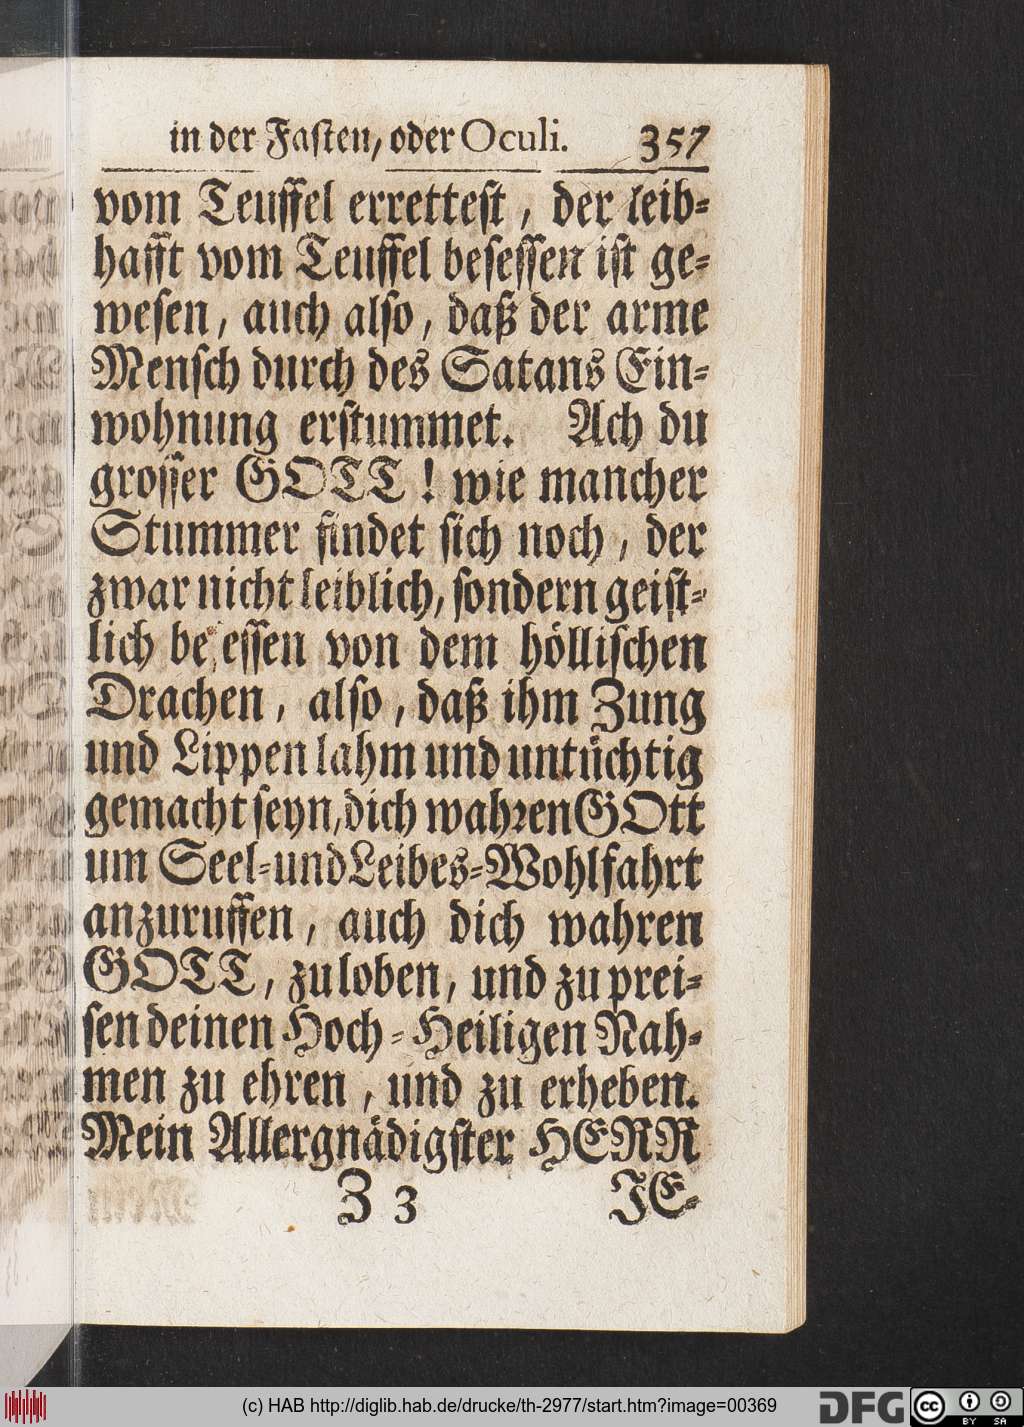 in der Fasten, oder Oculi. 357
vom Teuffel errettest, der leib-
hafft vom Teuffel besessen ist ge-
wesen, auch also, daß der arme
Mensch durch des Satans Ein-
wohnung erstummet. Ach du
grosser GOTT! wie mancher
Stummer findet sich noch, der
zwar nicht leiblich, sondern geist-
lich besessen von dem höllischen
Drachen, also, daß ihm Zung
und Lippen lahm und untüchtig
gemacht seyn, dich wahren GOtt
um Seel- und Leibes-Wohlfahrt
anzuruffen, auch dich wahren
GOTT, zu loben, und zu prei-
sen deinen Hoch-Heiligen Nah-
men zu ehren, und zu erheben.
Mein Allergnädigster HERR
Z 3 JE-
(c) HAB http://diglib.hab.de/drucke/th-2977/start.htm?image=00369
DFG cc BY SA